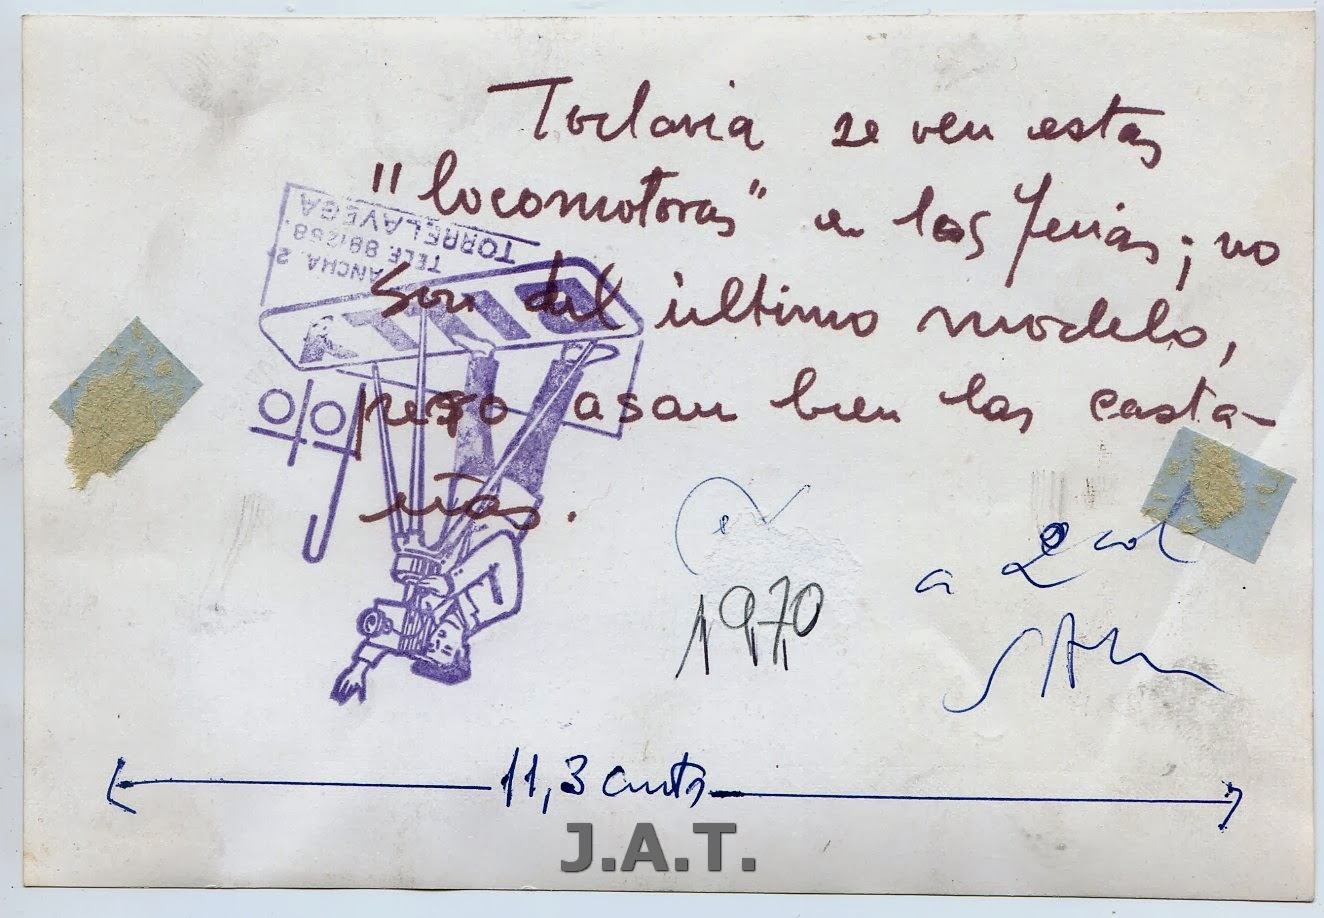 Todavia se ven estas
"locomotoras" en las ferias; no
son del último modelo,
pero asan bien las casta-
ñas.
TORRELAVEGA
TELF. 881258
ANCHA, 2
1970
a 2 col
11,3 cmts
J.A.T.